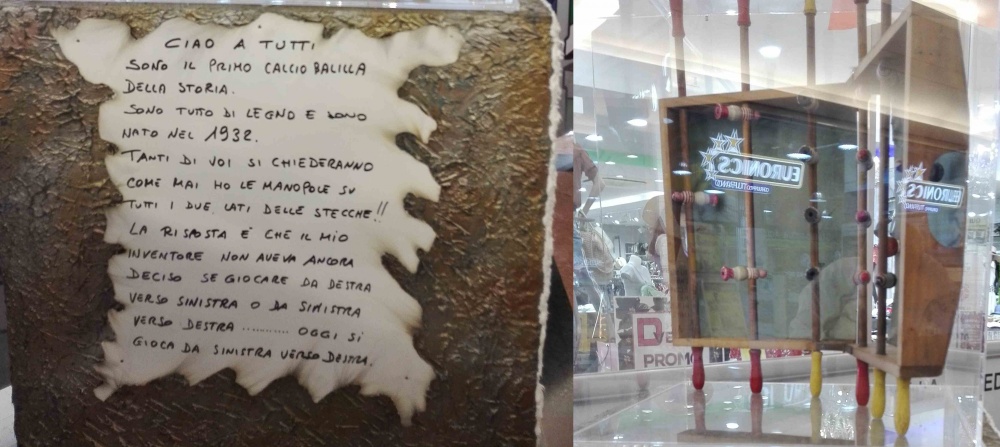 CIAO A TUTTI
SONO IL PRIMO CALCIO BALILLA
DELLA STORIA.
SONO TUTO DI LEGNO E SONO
NATO NEL 1932.
TANTI DI VOI SI CHIEDERANNO
COME MAI HO LE MANOPOLE SU
TUTI I DUE LATI DELLE STECCHE!!
LA RISPOSTA E' CHE IL MIO
INVENTORE NON AVEVA ANCORA
DECISO SE GIOCARE DA DESTRA
VERSO SINISTRA O DA SINISTRA
VERSO DESTRA ........... OGGI SI
GIOCA DA SINISTRA VERSO DESTRA.
EURONICS
GRUPPO TUFANO
EURONICS
GRUPPO TUFANO
PROMO